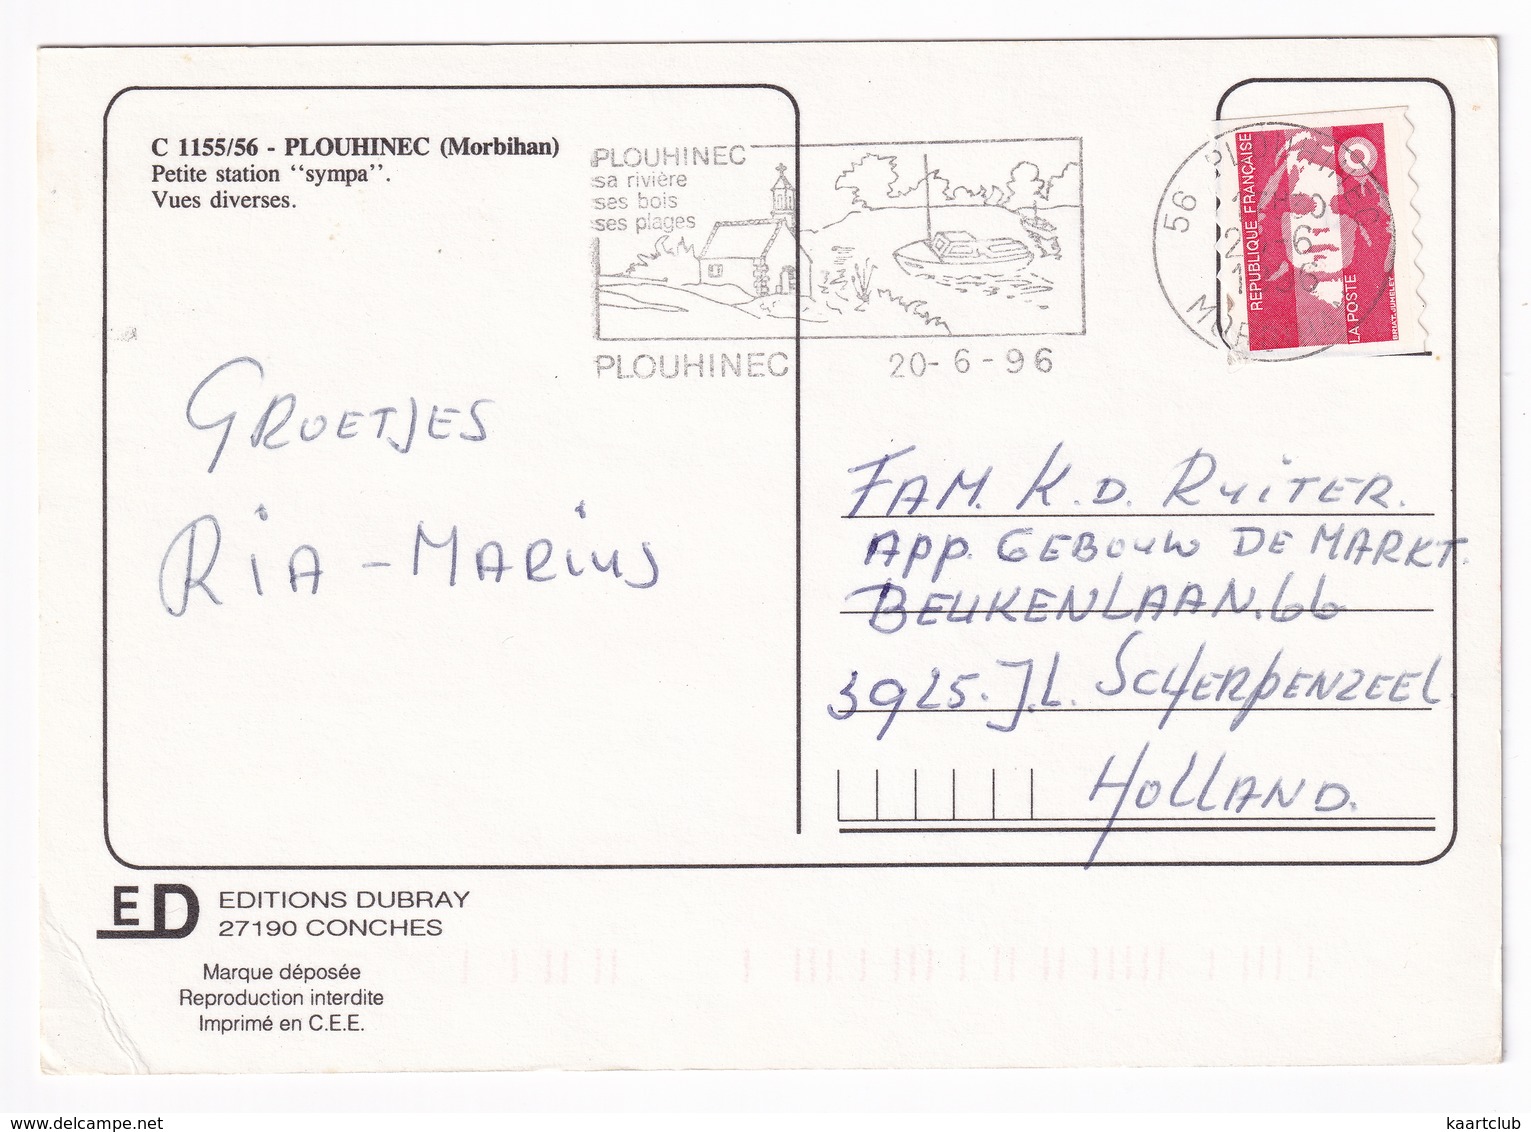 C 1155/56 - PLOUHINEC (Morbihan)
Petite station ‘‘sympa’’.
Vues diverses.
PLOUHINEC
sa rivière
ses bois
ses plages
PLOUHINEC 20-6-96
56
RÉPUBLIQUE FRANÇAISE
LA POSTE
BRIAT-JUMELET
GROETJES
RIA - MARIUS
FAM. K.D. RUITER.
APP. GEBOUW DE MARKT.
BEUKENLAAN. 66
3925. J.L. SCHERPENZEEL.
HOLLAND.
ED
EDITIONS DUBRAY
27190 CONCHES
Marque déposée
Reproduction interdite
Imprimé en C.E.E.
www.delcampe.net
kaartclub